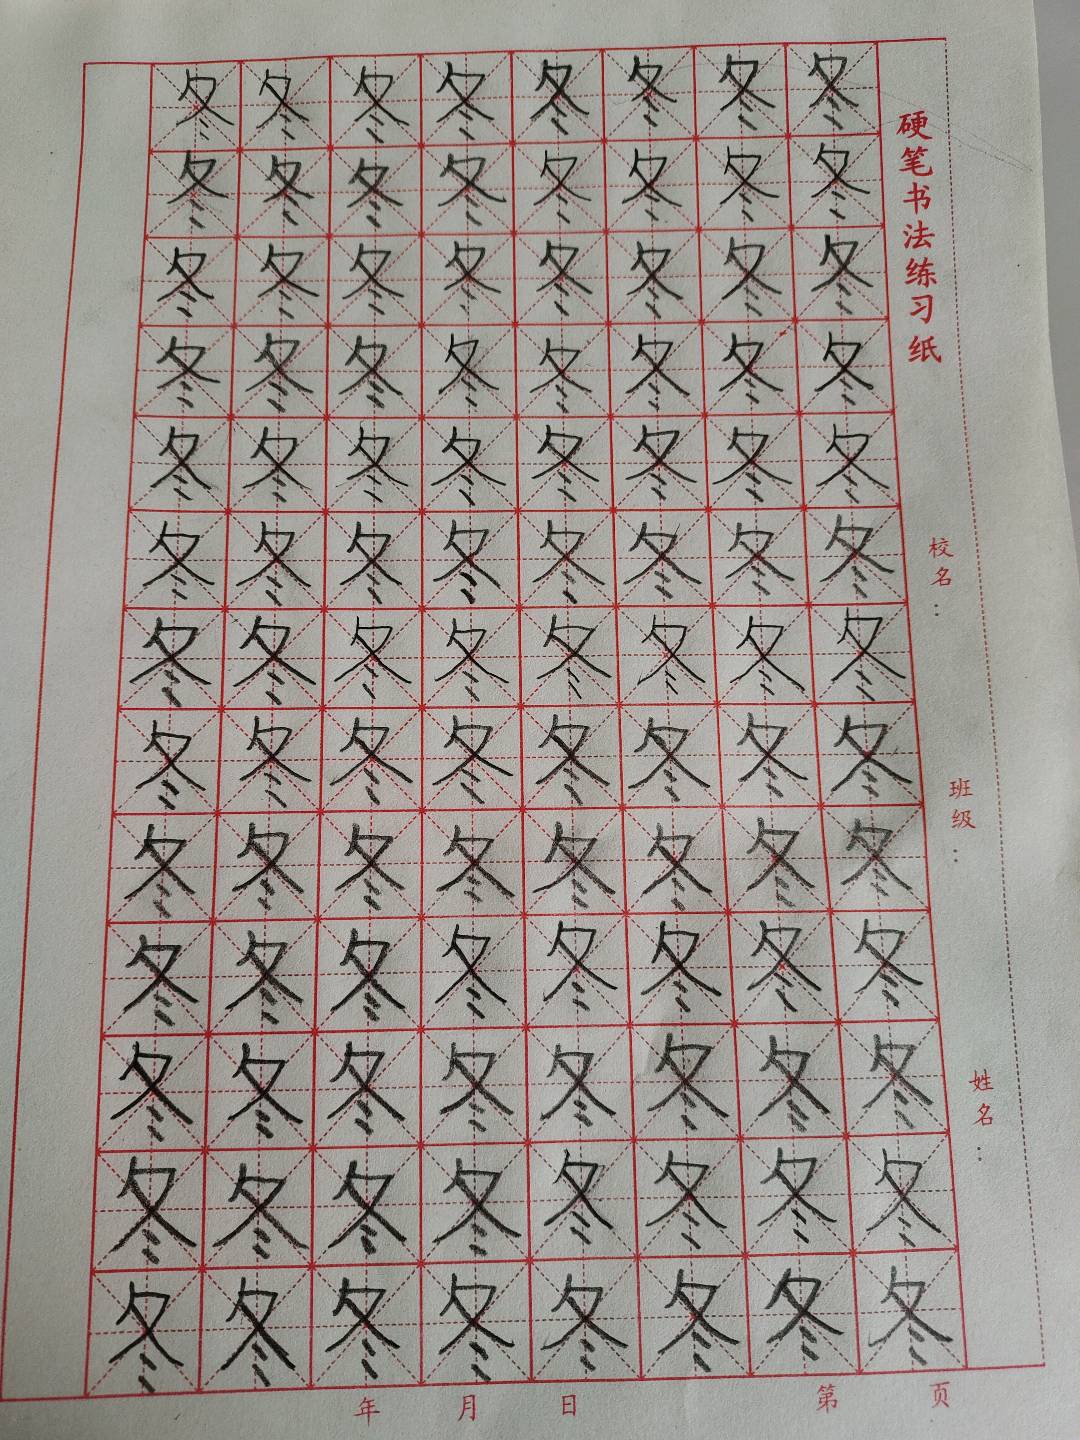 冬冬冬冬冬冬冬冬
冬冬冬冬冬冬冬冬
冬冬冬冬冬冬冬冬
冬冬冬冬冬冬冬冬
冬冬冬冬冬冬冬冬
冬冬冬冬冬冬冬冬
冬冬冬冬冬冬冬冬
冬冬冬冬冬冬冬冬
冬冬冬冬冬冬冬冬
冬冬冬冬冬冬冬冬
冬冬冬冬冬冬冬冬
冬冬冬冬冬冬冬冬
冬冬冬冬冬冬冬冬
硬笔书法练习纸
校名：
班级：
姓名：
年 月 日 第 页